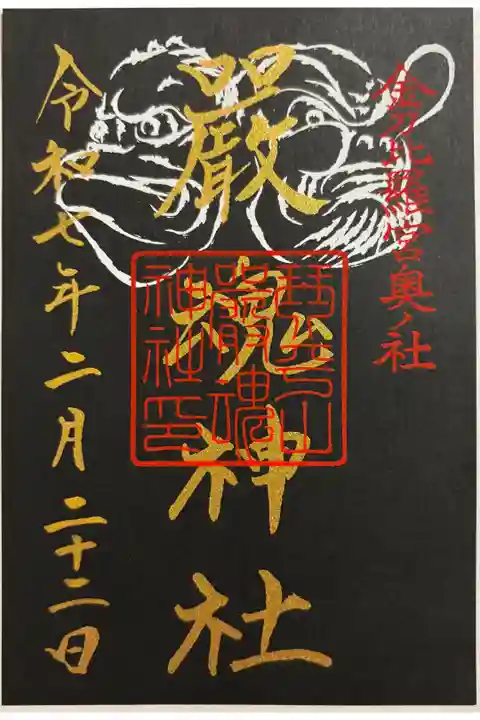 金刀比羅宮奥ノ社
嚴魂神社
琴平山
嚴魂
神社印
令和七年二月二十二日